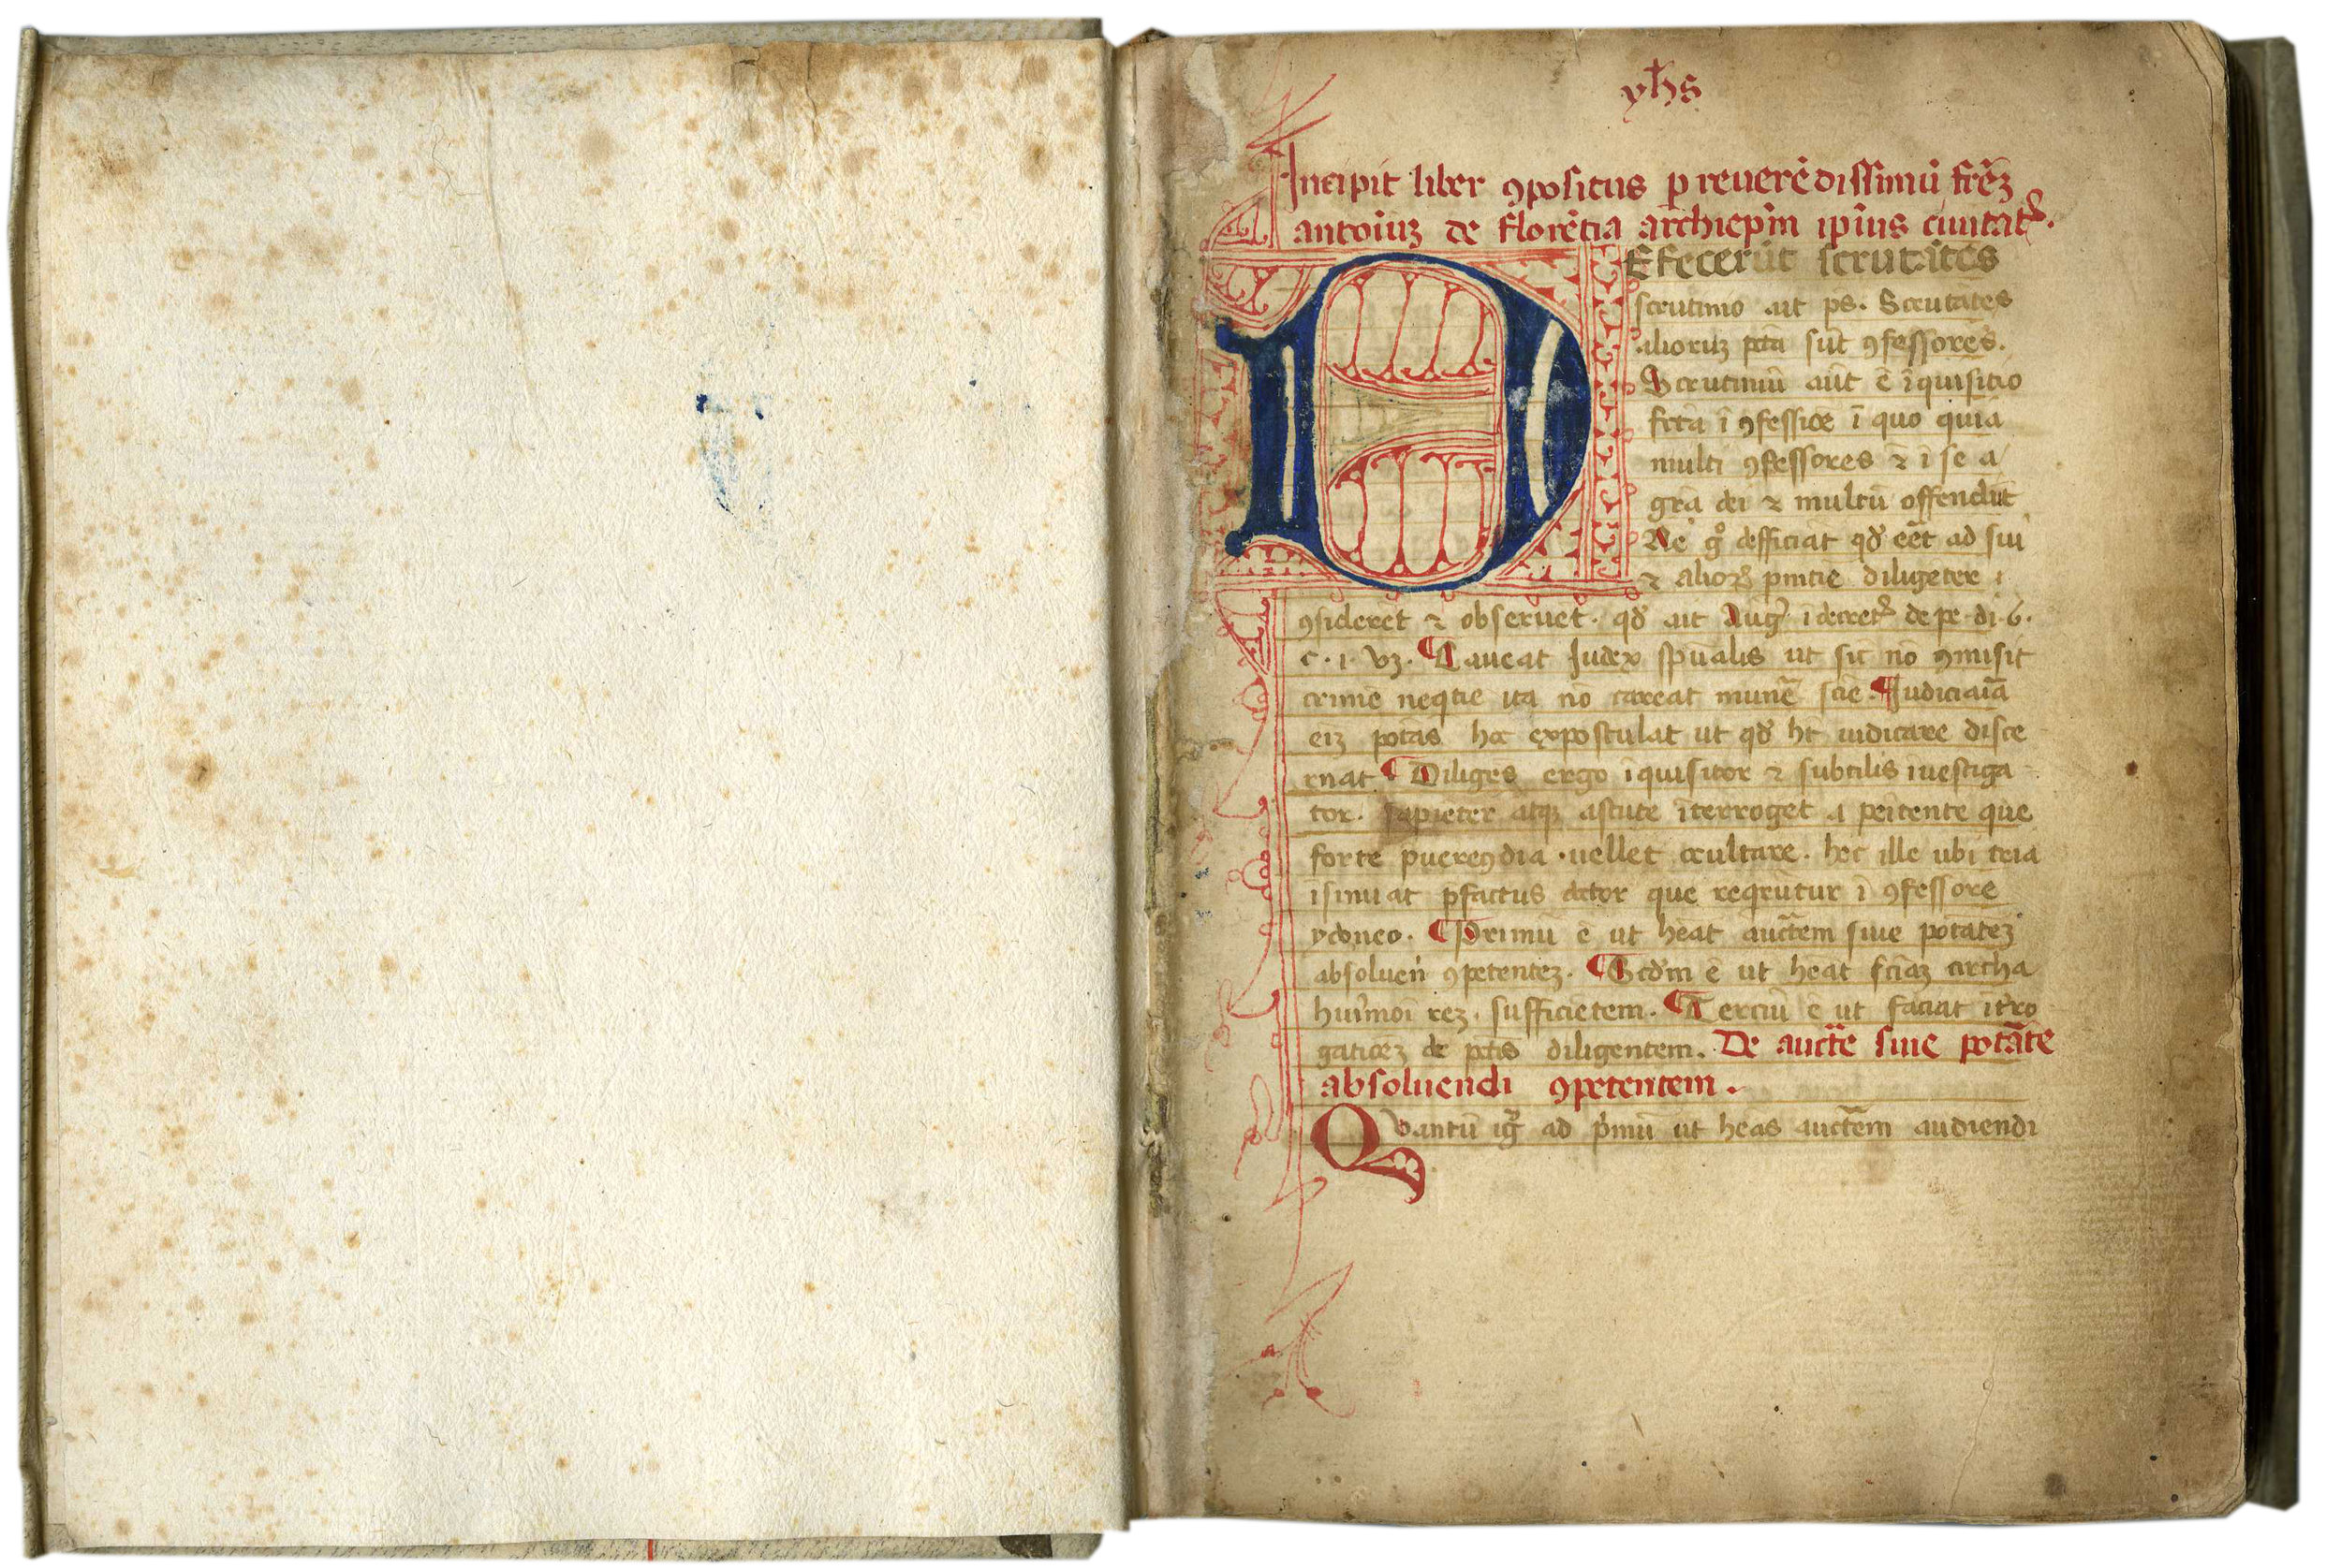 yhs
Incipit liber ꝯpositus ꝑ reuerēdissimū frēȝ
antoīuȝ de florētia archiepm̄ ip̄ius ciuitat
DEfecerūt scrutātes
scrutinio ait ps̄. Scrutātes
alioruȝ pctā sūt ꝯfessores.
Scrutiniū aūt ē īquisitio
fctā ī ꝯfessiōe ī quo quia
multi ꝯfessores ⁊ ī se a
grā dei ⁊ multū offendūt
Ne gͦ defficiat qd̓ eēt ad sui
⁊ alioꝝ pnītiē diligēter
ꝯsideret ⁊ obseruet. qd̓ ait Aug᷒ ī decret de pe. di. 6.
c. 1. vȝ. Caueat Judex sp̄ualis ut sic nō ꝯmisit
crimē neqtie ita nō careat munē sciē. Judiciaīa
eīȝ potās hoc expostulat ut qd̓ ht̄ iudicare disce
rnat Diligēs ergo īquisitor ⁊ subtilis īuestiga
tor. sapiēter atqȝ astute īterroget a penitente que
forte puerecūdia uellet occultare. hec ille ubi tria
isinuat p̄factus doctor que reqrūtur ī ꝯfessore
ydoneo. Primū ē ut heāt auctēm siue potātēȝ
absoluen̄ ꝯpetenteȝ. Scd̓m ē ut heāt sciāȝ circha
huīmōi reȝ. sufficiētem. Terciū ē ut faciat īt̓ro
gatiōeȝ de pctīs diligentem. De aucte siue potāte
absoluendi ꝯpetentem.
Qvantū igr̄ ad p̓mū ut heās auctēm audiendi